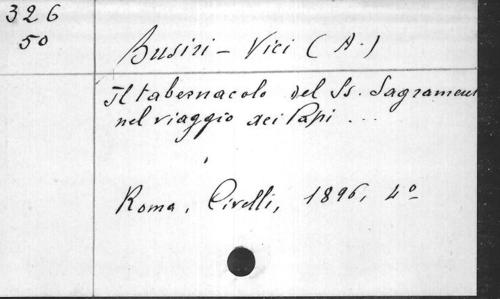 326
50
Busiri - Vici (A.)
Il tabernacolo del Ss. Sagramen
nel viaggio dei Papi ...
Roma, Civelli, 1896, 4º